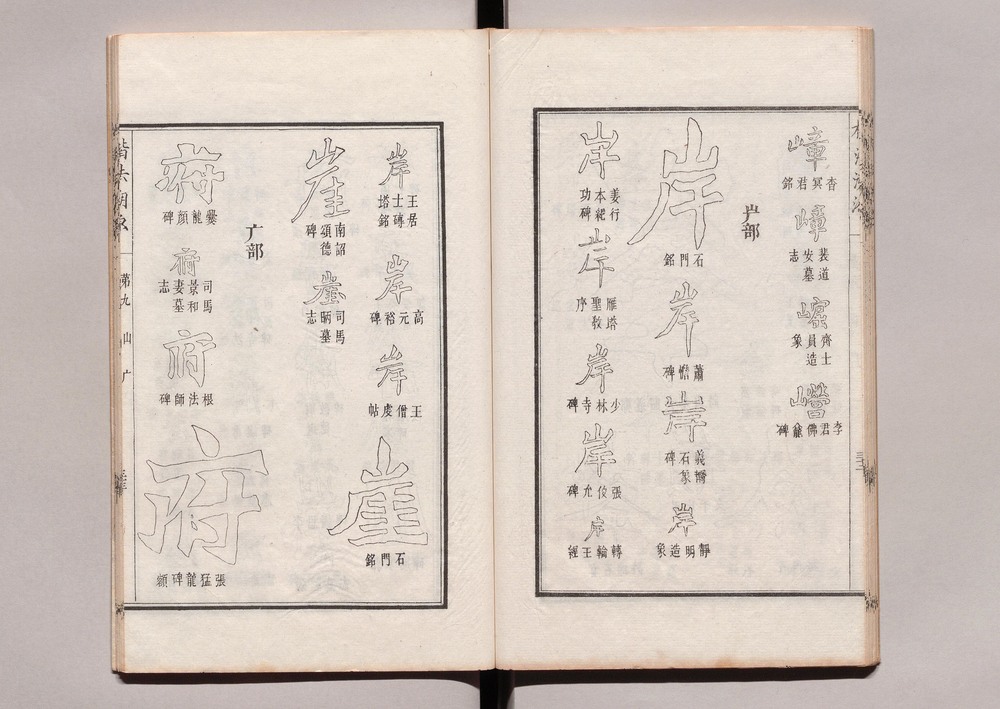 嶂
杳冥君銘
嶂
裴道安墓志
齊士員造象
李君佛龕碑
屵部
岸
石門銘
岸
蕭憺碑
岸
石象碑
岸
靜明造象
岸
姜行本紀功碑
岸
雁塔聖教序
岸
少林寺碑
岸
張允碑
岸
轉輪王經
岸
王居士磚塔銘
岸
高元裕碑
岸
王僧虔帖
崖
石門銘
崖
南詔德頌碑
崖
司馬昞墓志
广部
府
爨龍顏碑
府
司馬景和妻墓志
府
根法師碑
府
張猛龍碑額
楷法溯源 第九 山 广